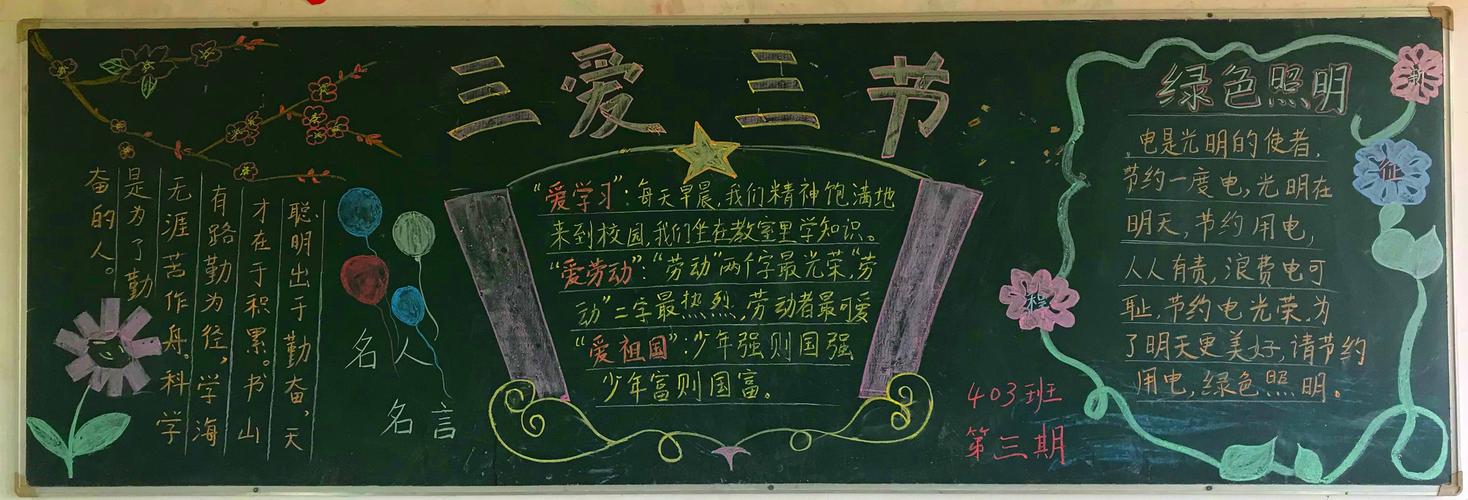 三爱 三节
聪明出于勤奋,天
才在于积累。书山
有路勤为径,学海
无涯苦作舟.科学
是为了勤
奋的人。
名人
名言
“爱学习”:每天早晨,我们精神饱满地
来到校园,我们坐在教室里学知识。
“爱劳动”:“劳动”两个字最光荣,“劳
动”二字最热烈,劳动者最可爱
“爱祖国”:少年强则国强
少年富则国富。
403班
第三期
绿色照明
电是光明的使者,
节约一度电,光明在
明天,节约用电,
人人有责,浪费电可
耻,节约电光荣.为
了明天更美好,请节约
用电,绿色照明。
新
征
程